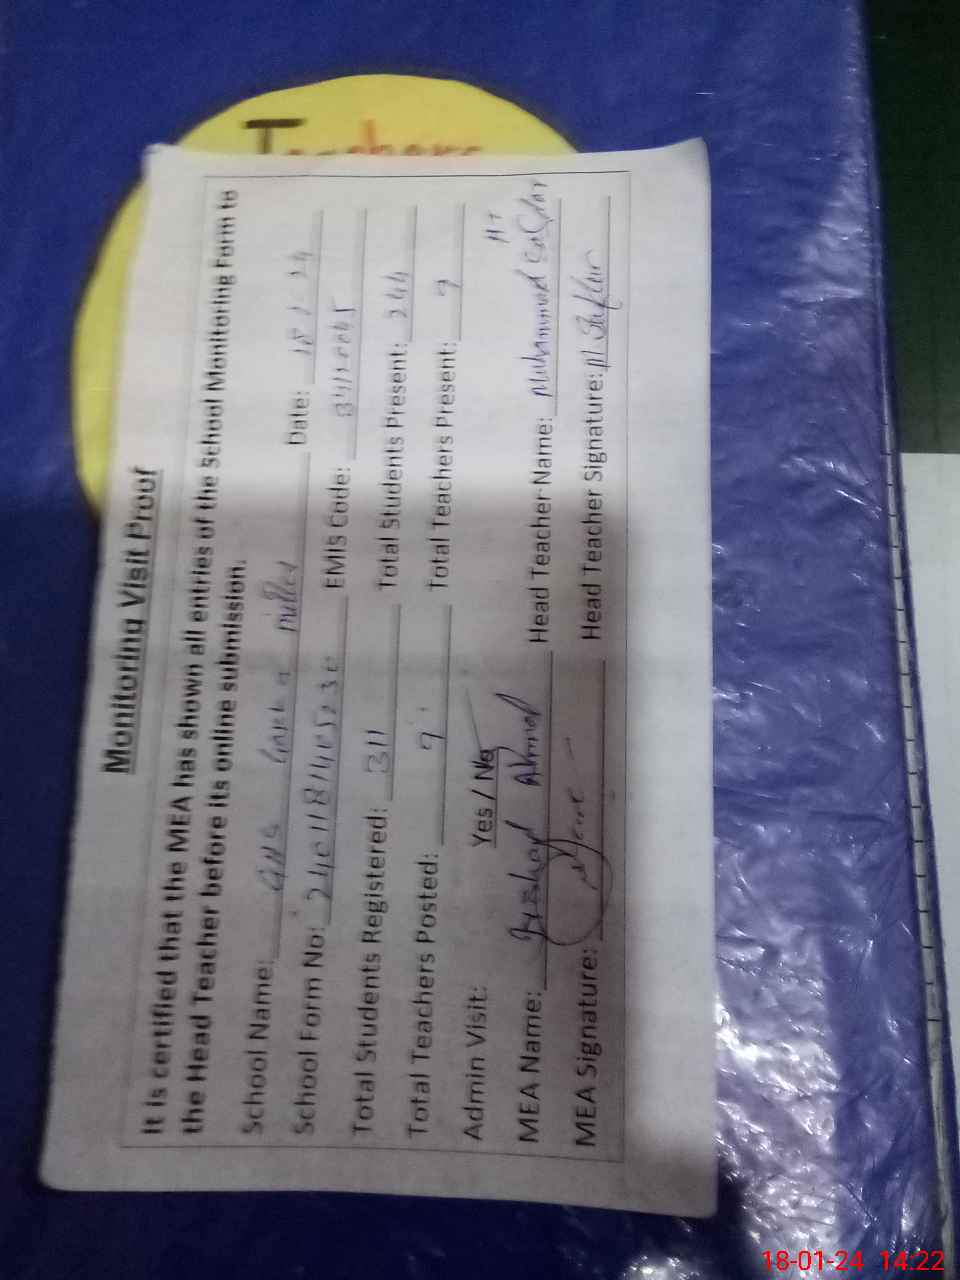 Teachers
Monitoring Visit Proof
It is certified that the MEA has shown all entries of the School Monitoring Form to
the Head Teacher before its online submission.
School Name: Date: 18-1-24
School Form No: EMIS Code:
Total Students Registered: 311 Total Students Present: 244
Total Teachers Posted: 9 Total Teachers Present: 9
Admin Visit: Yes / No
MEA Name: Ahmad Head Teacher Name: Muhammad
MEA Signature: Head Teacher Signature:
18-01-24 14:22